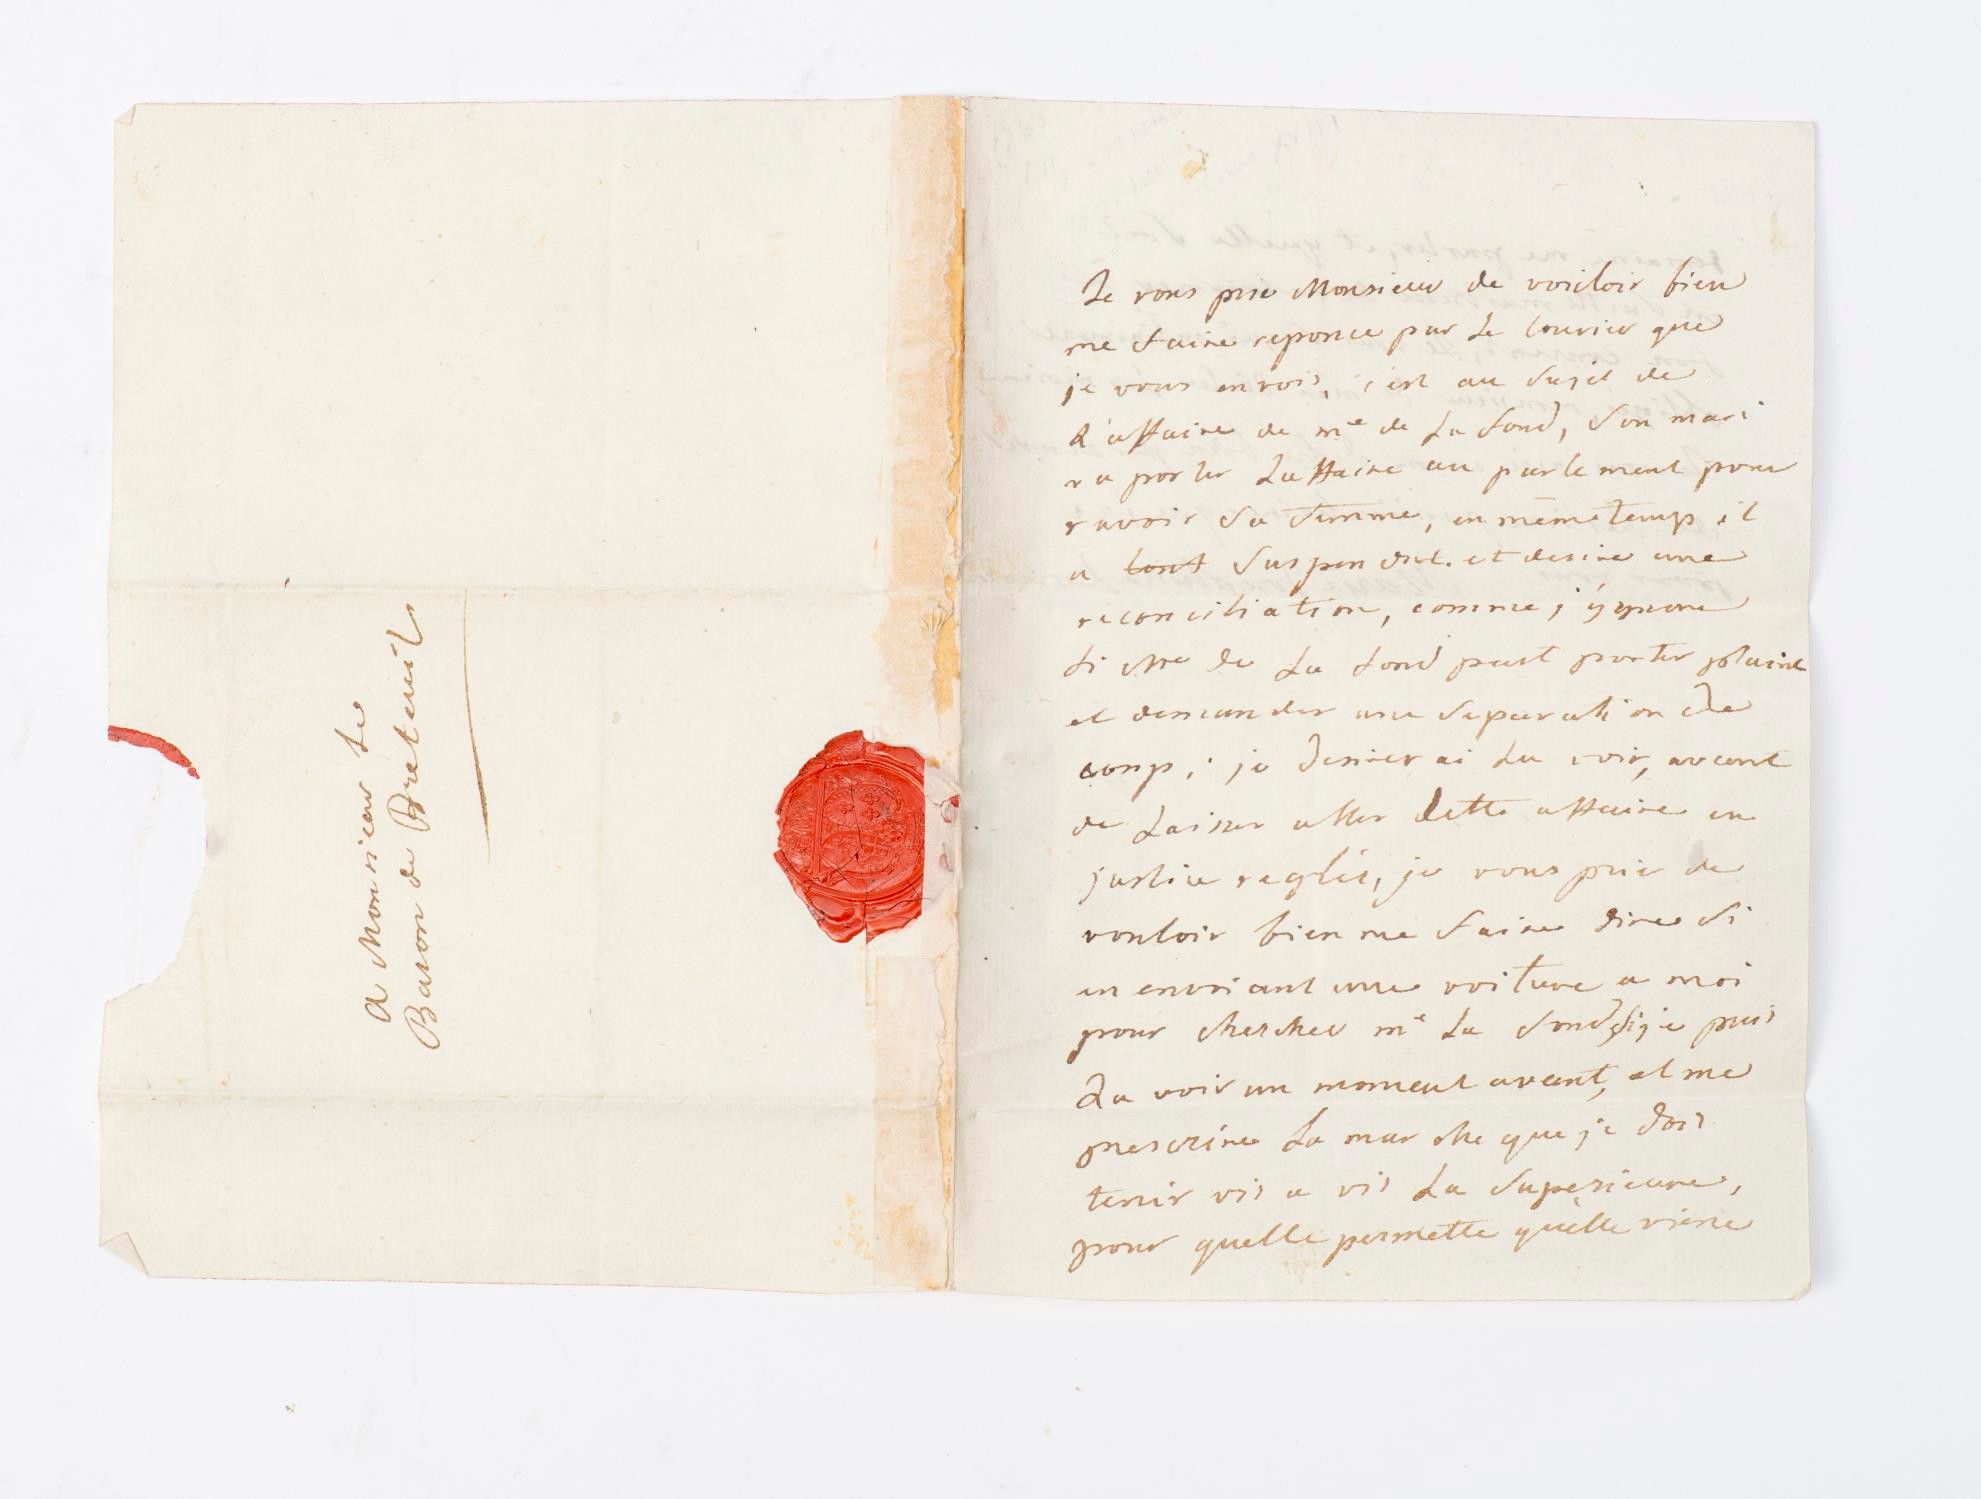 A Monsieur Le
Baron de Breteuil
Je vous prie Monsieur de vouloir bien
me faire reponce par Le Courier que
je vous envois, c'est au sujet de
L'affaire de me de La fond, son mari
va porter Laffaire au parlement pour
ravoir sa femme, en même temp il
a tout suspendut. et desire une
reconciliation, comme j'ygnore
si Me de La fond peut porter plainte
et demander une separation de
corp, je desirerai La voir, avant
de Laisser aller Cette affaire en
justice reglée, je vous prie de
vouloir bien me faire dire si
en envoiant une voiture a moi
pour chercher me La fond, si je puis
La voir un moment avant, et me
prescrire La marche que je dois
tenir vis a vis La superieure,
pour quelle permette qu'elle viene